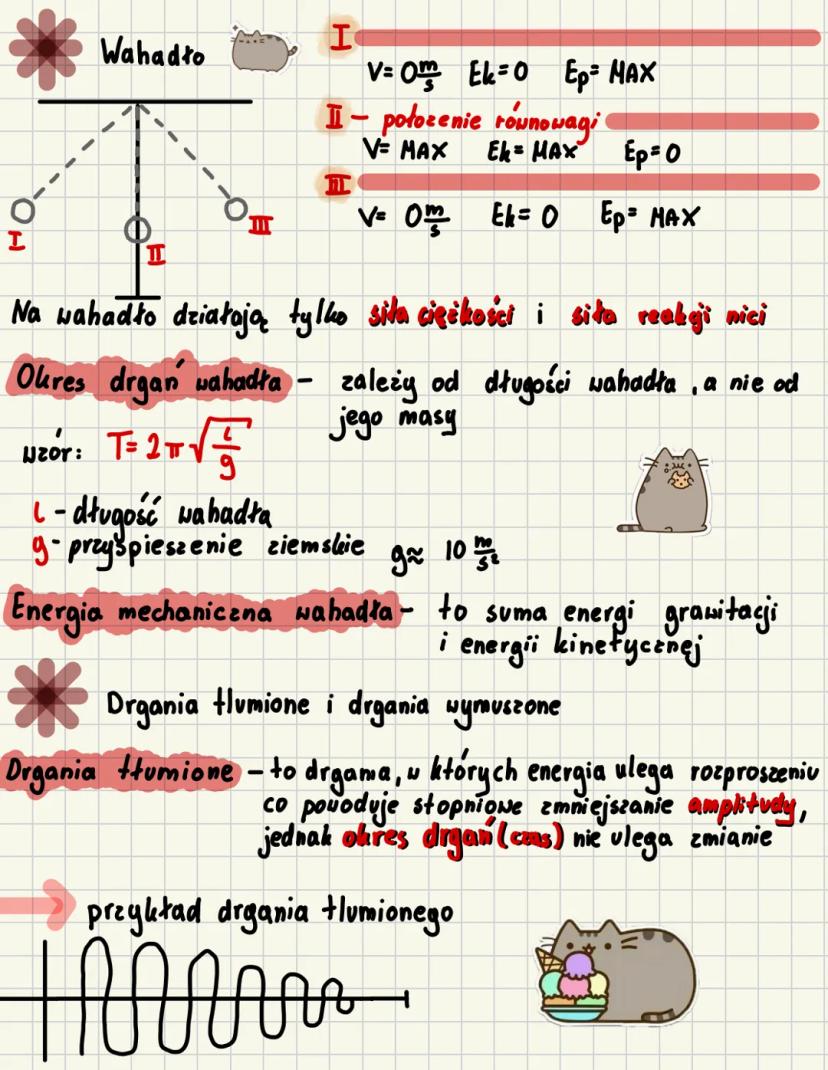 Wahadło
I
V= 0 m/s Ek= 0 Ep= MAX
II - położenie równowagi
V= MAX Ek= MAX Ep= 0
III
V= 0 m/s Ek= 0 Ep= MAX
I
II
III
Na wahadło działają tylko siła ciężkości i siła reakcji nici
Okres drgań wahadła - zależy od długości wahadła, a nie od
jego masy
wzór: T= 2π√(l/g)
l - długość wahadła
g - przyśpieszenie ziemskie g≈ 10 m/s²
Energia mechaniczna wahadła - to suma energi grawitacji
i energii kinetycznej
Drgania tłumione i drgania wymuszone
Drgania tłumione - to drgania, w których energia ulega rozproszeniu
co powoduje stopniowe zmniejszanie amplitudy,
jednak okres drgań (czas) nie ulega zmianie
przykład drgania tłumionego